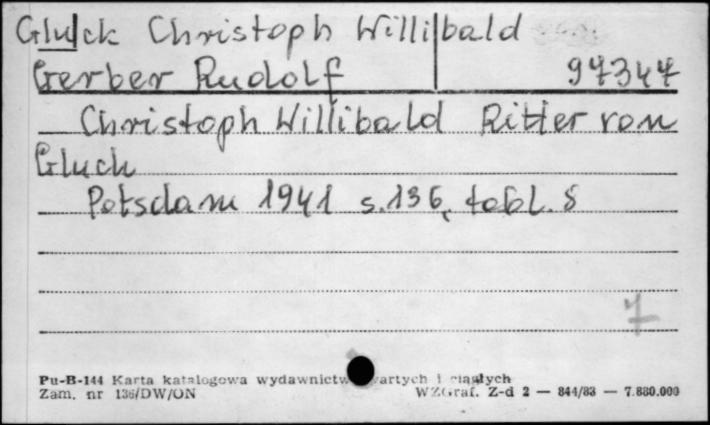 Gluck Christoph Willibald
Gerber Rudolf 97347
Christoph Willibald Ritter von
Gluck
Potsdam 1941 s.136, tabl. 8
7
Pu-B-144 Karta katalogowa wydawnictw zwartych i ciągłych
Zam. nr 136/DW/ON WZGraf. Z-d 2 — 844/83 — 7.880.000